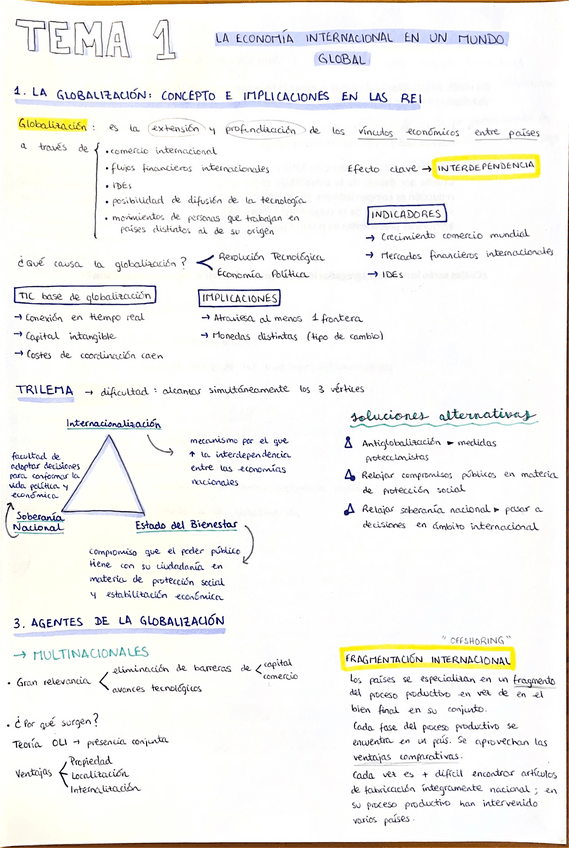 TEMA 1
LA ECONOMÍA INTERNACIONAL EN UN MUNDO
GLOBAL
1. LA GLOBALIZACIÓN: CONCEPTO E IMPLICACIONES EN LAS REI
Globalización: es la extensión y profundización de los vínculos económicos entre países
a través de
• comercio internacional
• flujos financieros internacionales
• IDEs
• posibilidad de difusión de la tecnología
• movimientos de personas que trabajan en
países distintos al de su origen
Efecto clave → INTERDEPENDENCIA
INDICADORES
→ Crecimiento comercio mundial
→ Mercados financieros internacionales
→ IDEs
¿Qué causa la globalización?
Revolución Tecnológica
Economía Política
TIC base de globalización
→ Conexión en tiempo real
→ Capital intangible
→ Costes de coordinación caen
IMPLICACIONES
→ Atraviesa al menos 1 frontera
→ Monedas distintas (tipo de cambio)
TRILEMA → dificultad: alcanzar simultáneamente los 3 vértices
Internacionalización
mecanismo por el que
↑ la interdependencia
entre las economías
nacionales
facultad de
adoptar decisiones
para conformar la
vida política y
económica
Soberanía
Nacional
Estado del Bienestar
compromiso que el poder público
tiene con su ciudadanía en
materia de protección social
y estabilización económica
soluciones alternativas
Antiglobalización ► medidas
proteccionistas
Relajar compromisos públicos en materia
de protección social
Relajar soberanía nacional ► pasar a
decisiones en ámbito internacional
3. AGENTES DE LA GLOBALIZACIÓN
→ MULTINACIONALES
• Gran relevancia
eliminación de barreras de
capital
comercio
avances tecnológicos
• ¿Por qué surgen?
Teoría OLI → presencia conjunta
Ventajas
Propiedad
Localización
Internalización
"OFFSHORING"
FRAGMENTACIÓN INTERNACIONAL
Los países se especializan en un fragmento
del proceso productivo en vez de en el
bien final en su conjunto.
Cada fase del proceso productivo se
encuentra en un país. Se aprovechan las
ventajas comparativas.
Cada vez es + difícil encontrar artículos
de fabricación íntegramente nacional; en
su proceso productivo han intervenido
varios países.